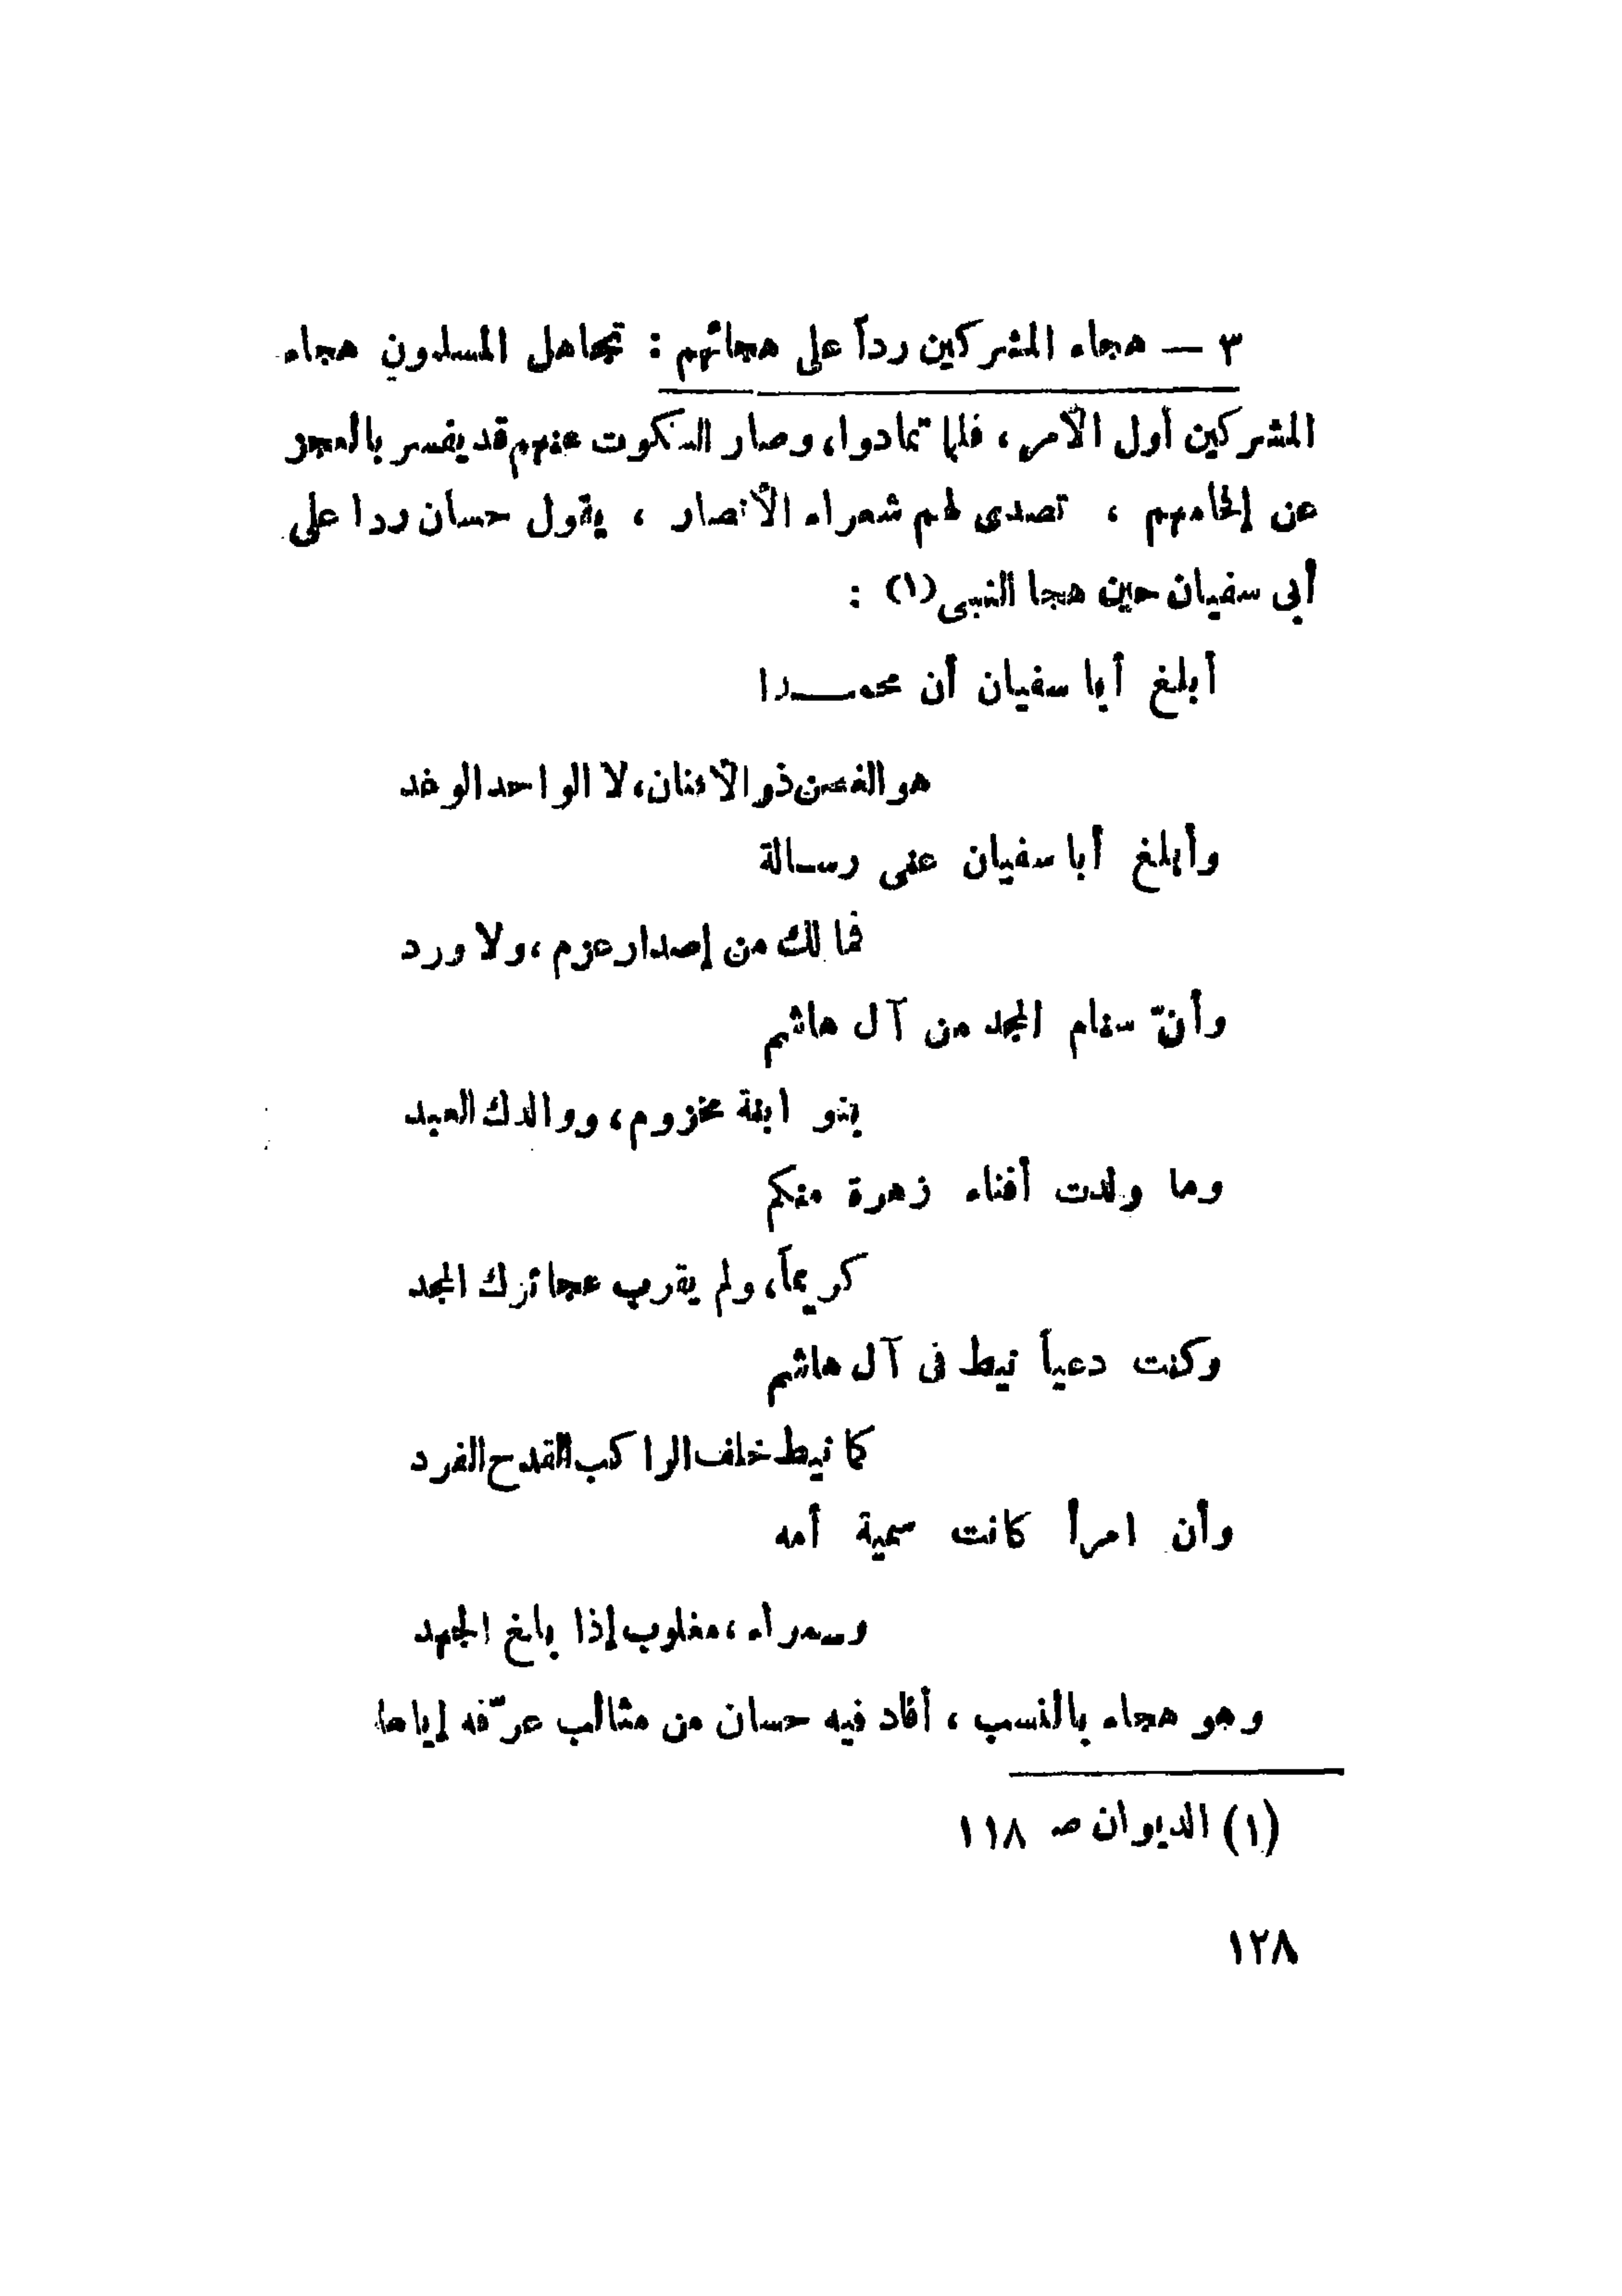 ٣ — هجاء المشركين رداً على هجائهم : تجاهل المسلمون هجاء
المشركين أول الأمر ، فلما تمادوا، وصار السكوت عنهم قد يفسر بالعجز
عن إلحامهم ، تصدى لهم شعراء الأنصار ، يقول حسان ردا على
أبى سفيان حين هجا النبى(١) :
أبلغ أبا سفيان أن محمـــدا
هو الغصن ذو الأفنان، لا الواحد الوغد
وأبلغ أبا سفيان عنى رسالة
فما لك من إصدار عزم ، ولا ورد
وأنّ سنام المجد من آل هاشم
بنو ابنة مخزوم ، ووالدك العبد
وما ولدت أفناء زهرة منكم
كريماً، ولم يقرب عجائزك المجد
وكنت دعياً نيط فى آل هاشم
كما نيط خلف الراكب القدح الفرد
وأن امرأ كانت سمية أمه
وسمراء ، مغلوب إذا بلغ الجهد
وهو هجاء بالنسب ، أفاد فيه حسان من مثالب عرّفه إياها
(١) الديوان صـ ١١٨
١٢٨